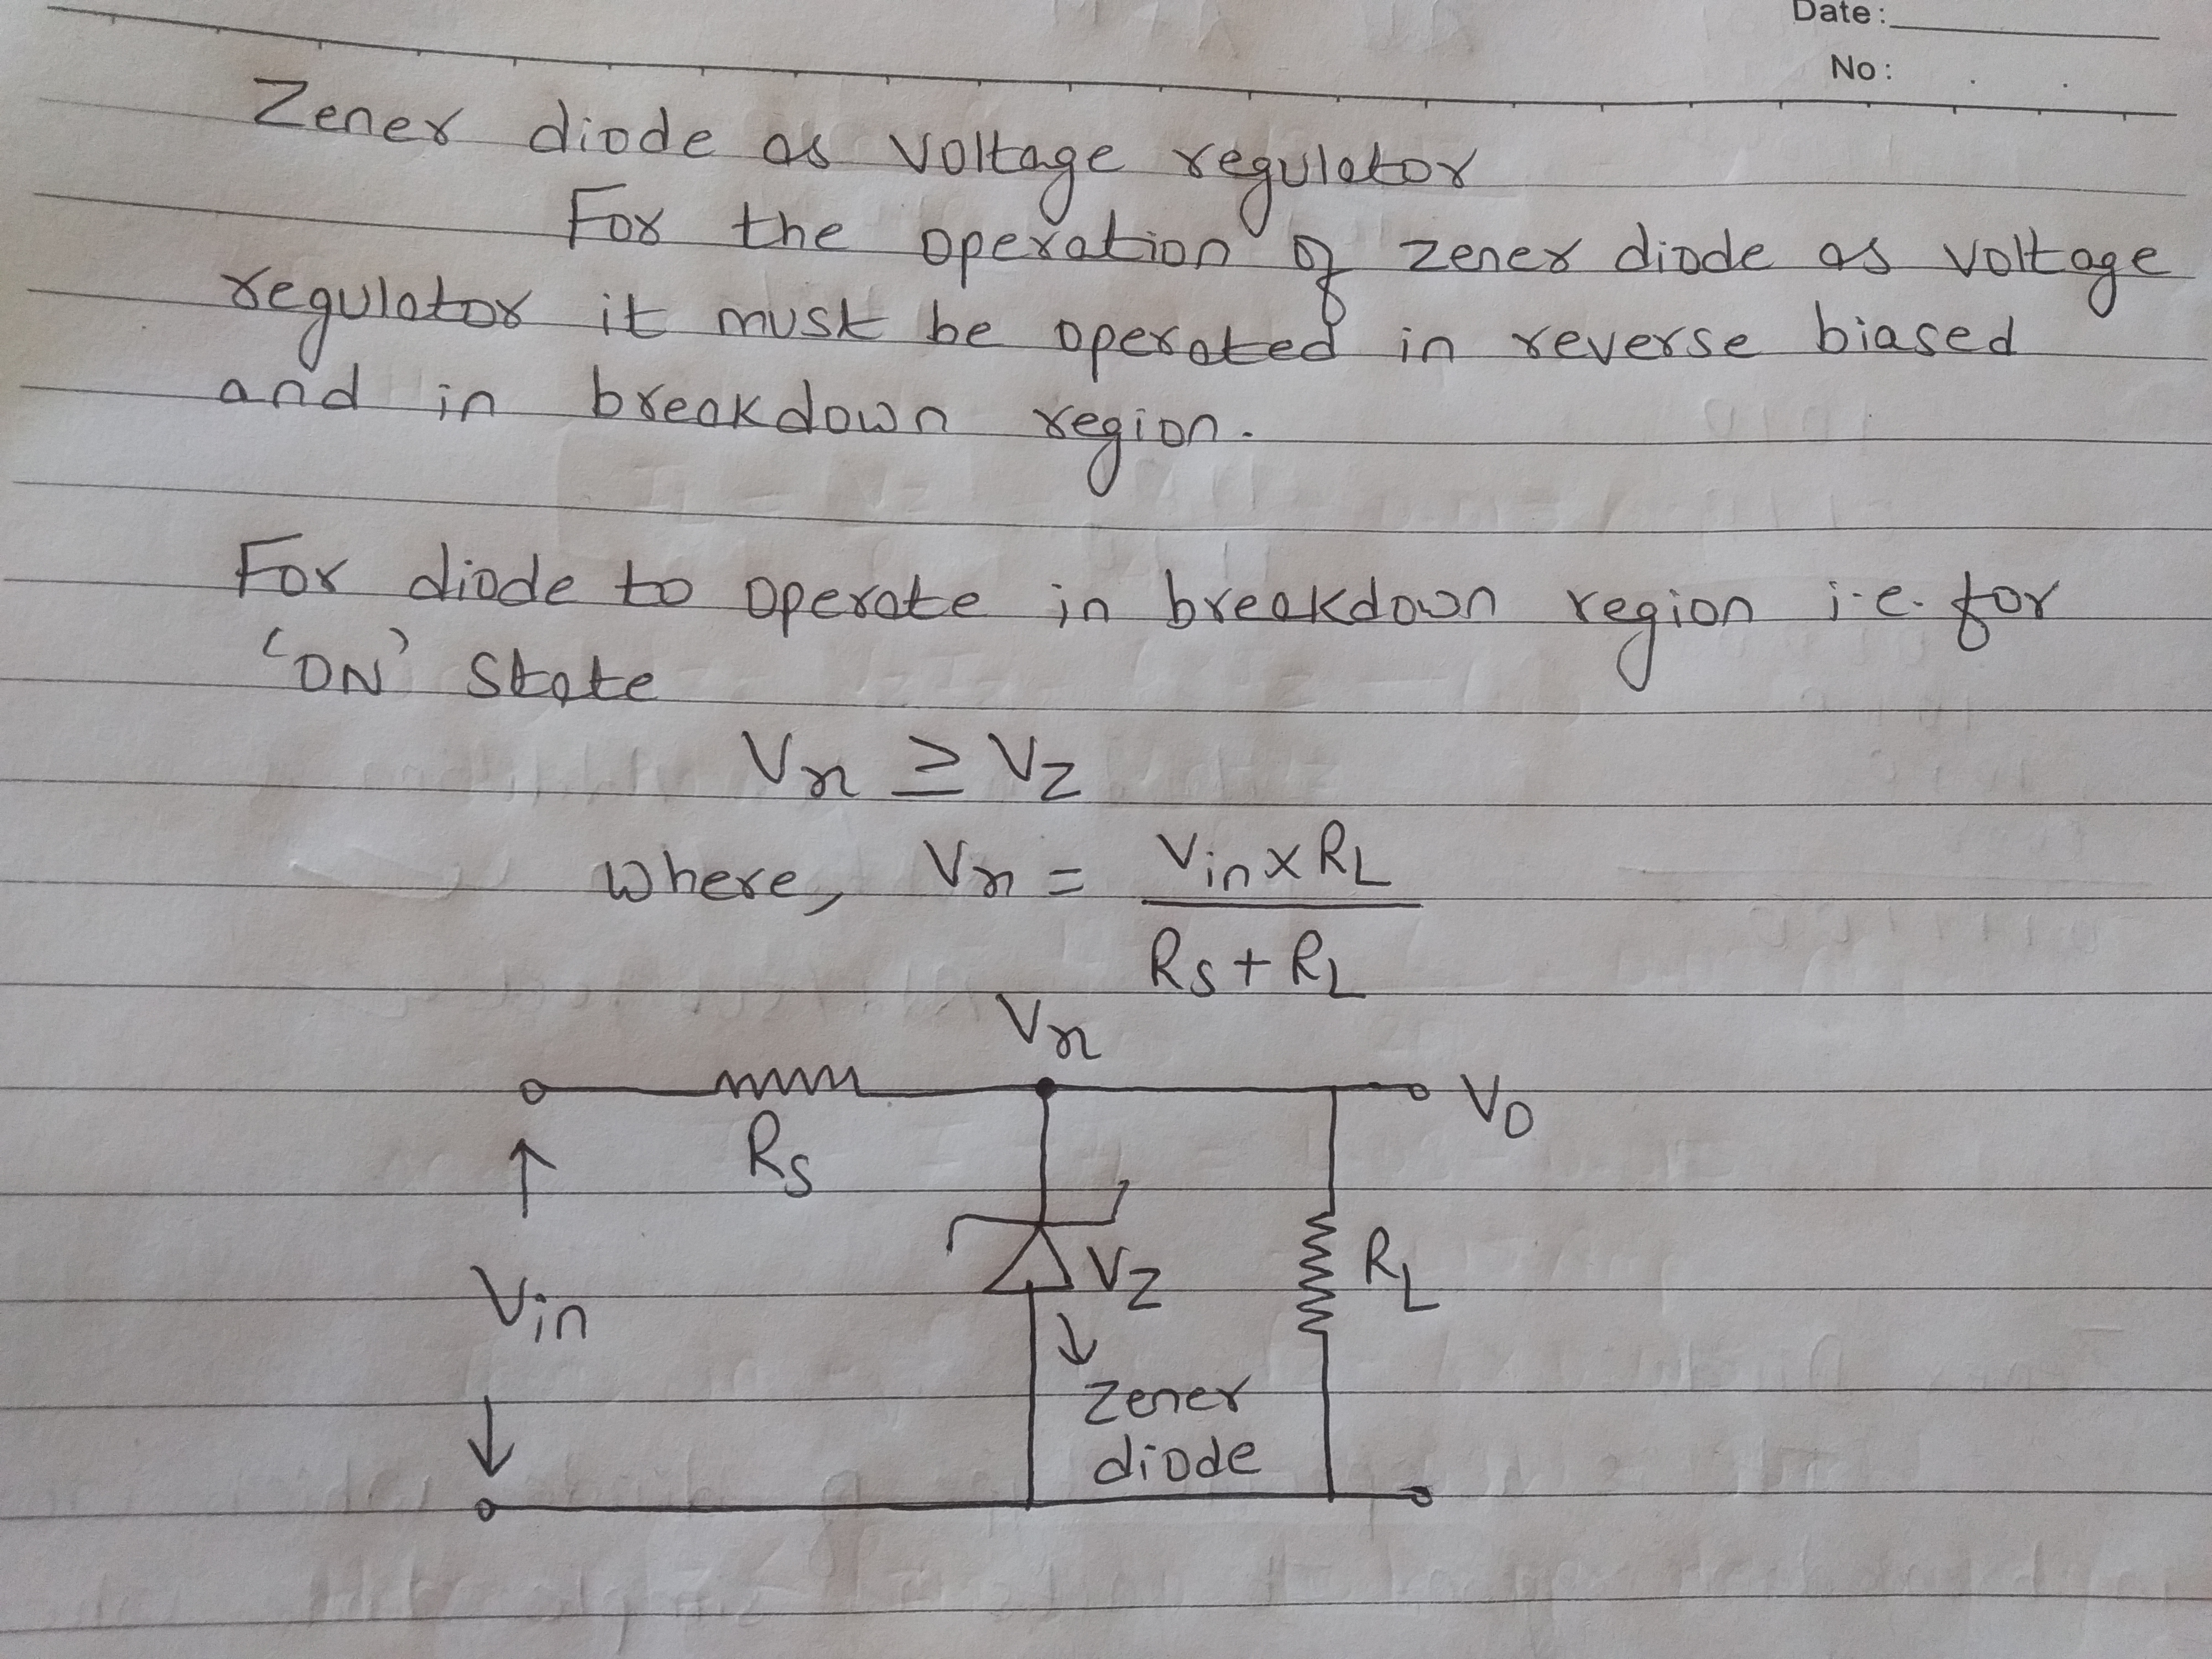 Date:
No:
Zener diode as voltage regulator
For the operation of zener diode as voltage
regulator it must be operated in reverse biased
and in breakdown region.
For diode to operate in breakdown region i.e. for
'ON' state
Vx ≥ Vz
where, Vx = Vin x RL
Rs + RL
Vx
Vo
Rs
Vz
RL
Vin
Zener
diode